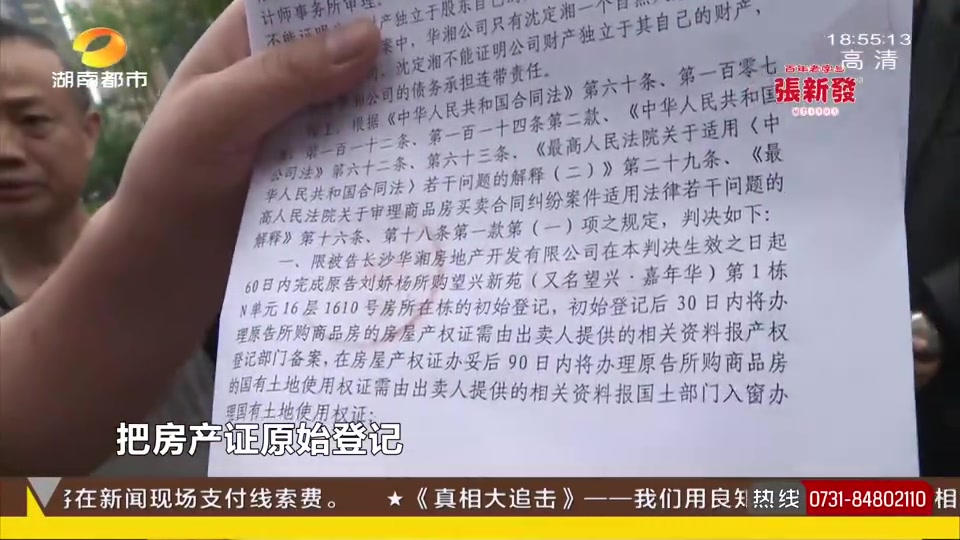 计师事务所审理.
不能证明 产独立于股东自己的
案中,华湘公司只有沈定湘一个自然人
司,沈定湘不能证明公司财产独立于其自己的财产,
公司的债务承担连带责任。
综上,根据《中华人民共和国合同法》第六十条、第一百零七
条、第一百一十二条、第一百一十四条第二款、《中华人民共和国
公司法》第六十二条、第六十三条、《最高人民法院关于适用〈中
华人民共和国合同法〉若干问题的解释(二)》第二十九条、《最
高人民法院关于审理商品房买卖合同纠纷案件适用法律若干问题的
解释》第十六条、第十八条第一款第(一)项之规定,判决如下:
一、限被告长沙华湘房地产开发有限公司在本判决生效之日起
60日内完成原告刘娇杨所购望兴新苑(又名望兴·嘉年华)第1栋
N单元16层1610号房所在栋的初始登记,初始登记后30日内将办
理原告所购商品房的房屋产权证需由出卖人提供的相关资料报产权
登记部门备案,在房屋产权证办妥后90日内将办理原告所购商品房
的国有土地使用权证需由出卖人提供的相关资料报国土部门入窗办
理国有土地使用权证;
湖南都市
18:55:13
高清
百年老字号
張新發
把房产证原始登记
将在新闻现场支付线索费。 ★《真相大追击》——我们用良知
热线 0731-84802110 相